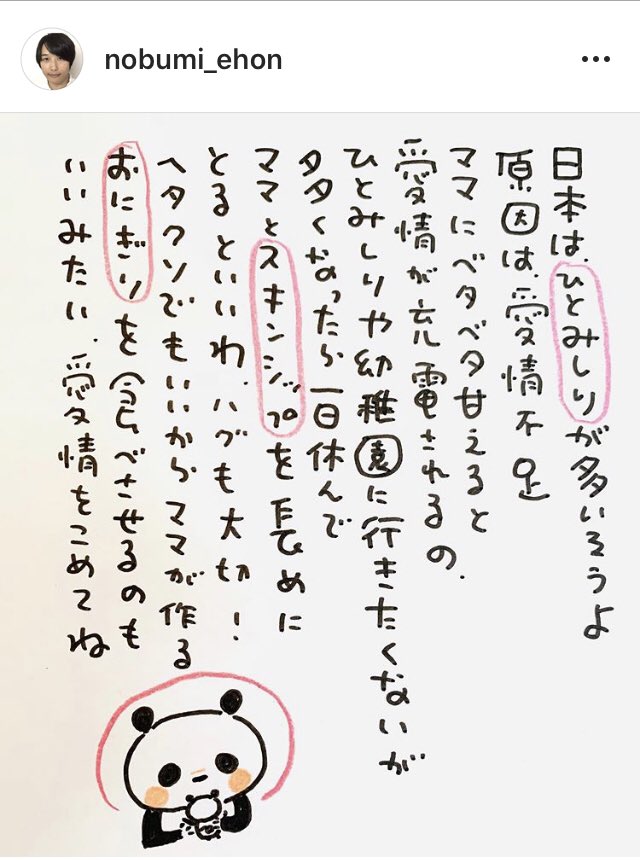 nobumi_ehon
日本は、ひとみしりが多いそうよ
原因は、愛情不足
ママにベタベタ甘えると
愛情が充電されるの.
ひとみしりや幼稚園に行きたくないが
多くなったら一日休んで
ママとスキンシップを長めに
とるといいわ.ハグも大切!
ヘタクソでもいいからママが作る
おにぎりを食べさせるのも
いいみたい.愛情をこめてね